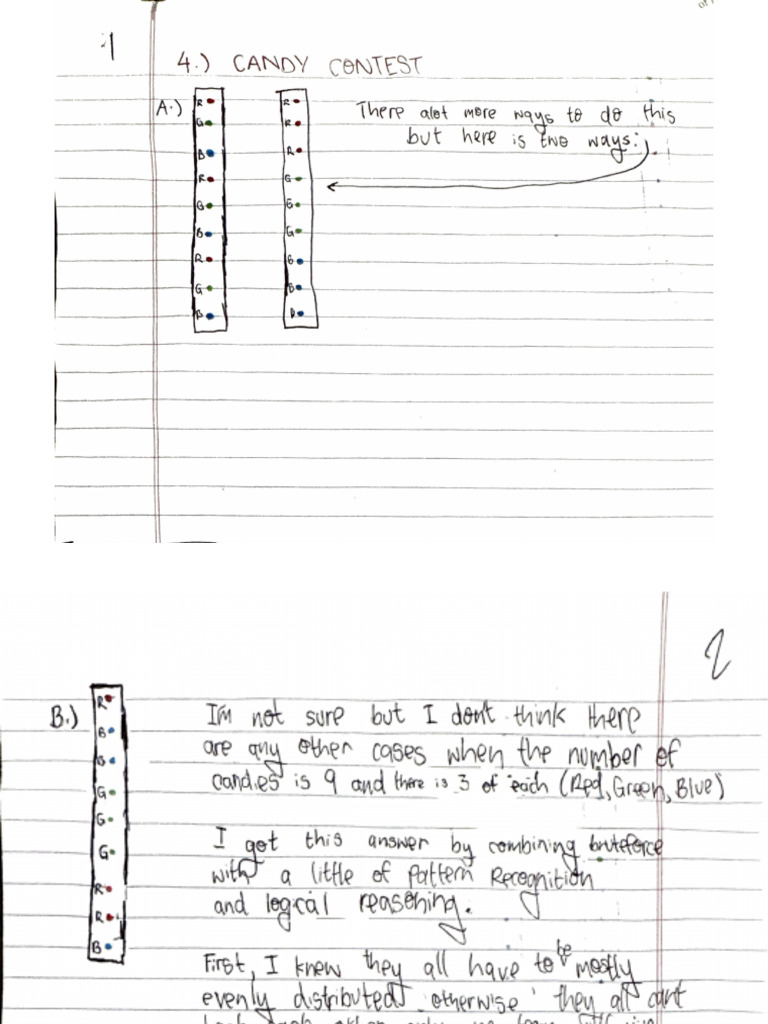 1
4.) CANDY CONTEST
A.)
R
G
B
R
G
B
R
G
B
R
R
R
G
G
G
B
B
B
There alot more ways to do this
but here is two ways:
2
B.)
R
B
B
G
G
G
R
R
B
I'm not sure but I don't think there
are any other cases when the number of
candies is 9 and there is 3 of each (Red, Green, Blue)
I got this answer by combining bruteforce
with a little of Pattern Recognition
and logical reasoning.
First, I knew they all have to be mostly
evenly distributed otherwise they all cant